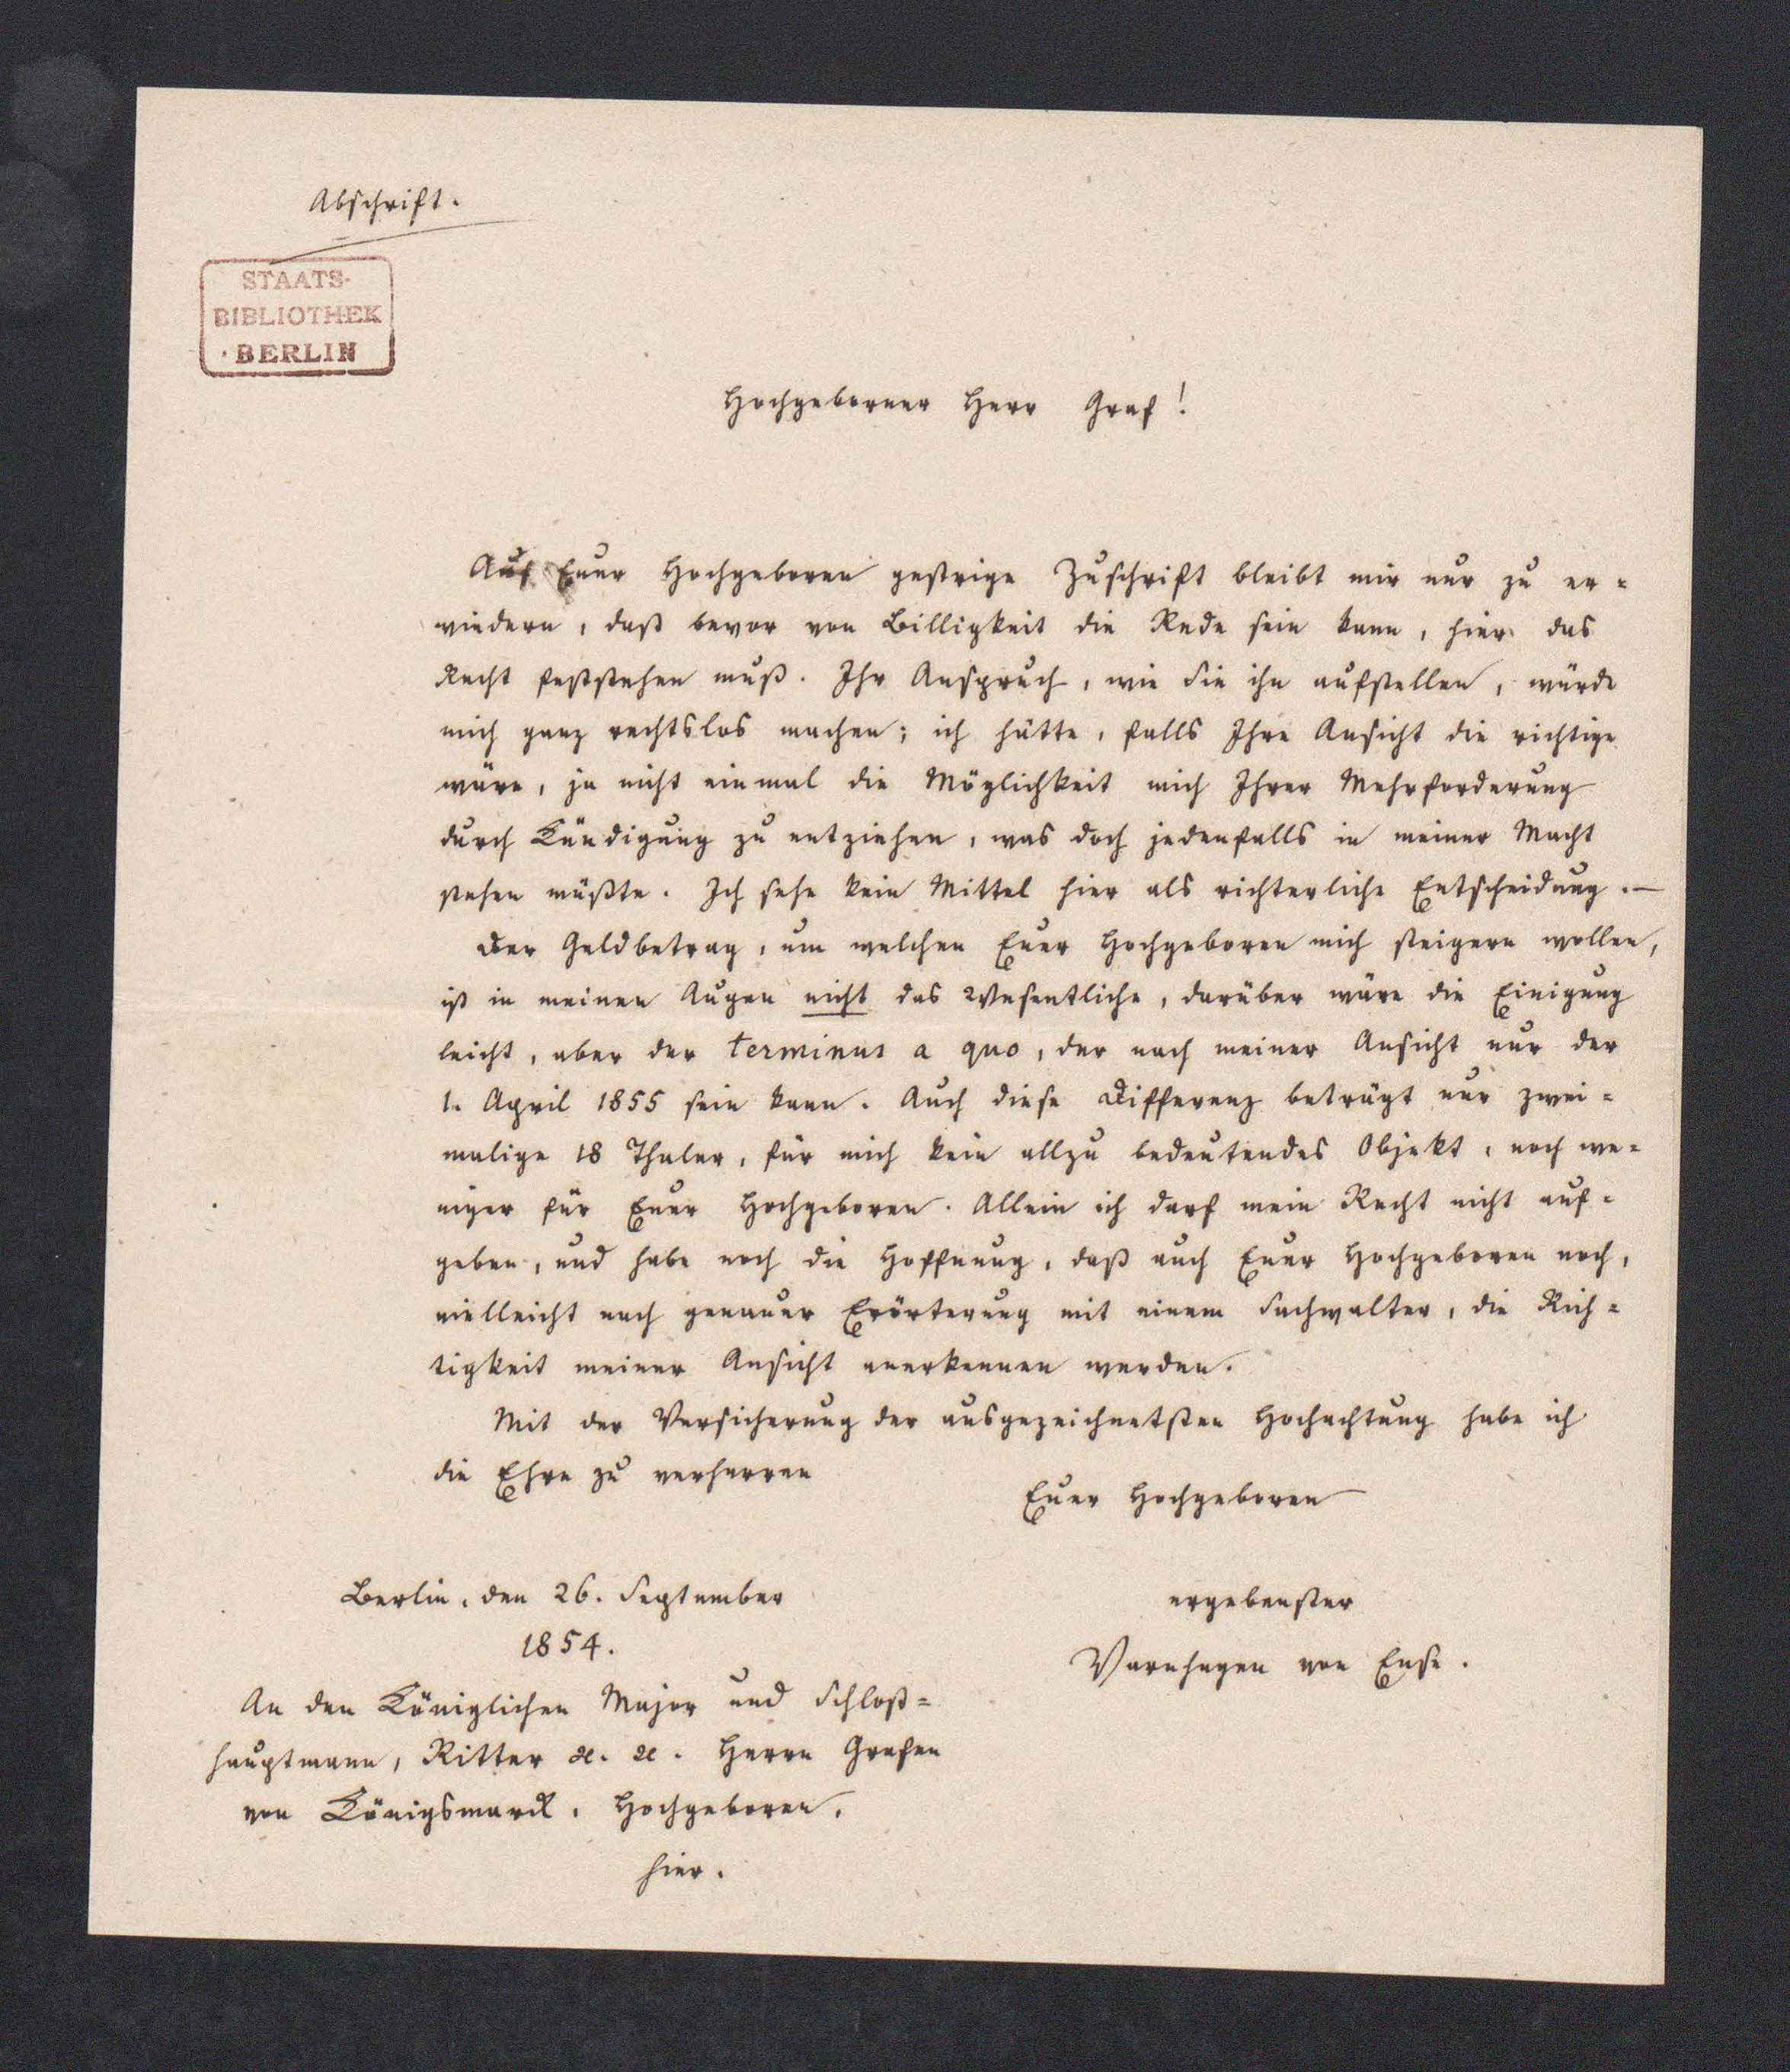 Abschrift.
STAATS-
BIBLIOTHEK
· BERLIN
Hochgeborner Herr Graf!
Auf Euer Hochgeboren gestrige Zuschrift bleibt mir nur zu er-
wiedern, daß bevor von Billigkeit die Rede sein kann, hier das
Recht feststehen muß. Ihr Anspruch, wie Sie ihn aufstellen, würde
mich ganz rechtslos machen; ich hätte, falls Ihre Ansicht die richtige
wäre, ja nicht einmal die Möglichkeit mich Ihrer Mehrforderung
durch Kündigung zu entziehen, was doch jedenfalls in meiner Macht
stehen müßte. Ich sehe kein Mittel hier als richterliche Entscheidung. —
Der Geldbetrag, um welchen Euer Hochgeboren mich steigern wollen,
ist in meinen Augen nicht das Wesentliche, darüber wäre die Einigung
leicht, aber der terminus a quo, der nach meiner Ansicht nur der
1. April 1855 sein kann. Auch diese Differenz beträgt nur zwei-
malige 18 Thaler, für mich kein allzu bedeutendes Objekt, noch we-
niger für Euer Hochgeboren. Allein ich darf mein Recht nicht auf-
geben, und habe noch die Hoffnung, daß auch Euer Hochgeboren noch,
vielleicht nach genauer Erörterung mit einem Sachwalter, die Rich-
tigkeit meiner Ansicht anerkennen werden.
Mit der Versicherung der ausgezeichnetsten Hochachtung habe ich
die Ehre zu verharren
Euer Hochgeboren
Berlin, den 26. September
1854.
ergebenster
Varnhagen von Ense.
An den Königlichen Major und Schloß-
hauptmann, Ritter ꝛc. ꝛc. Herrn Grafen
von Königsmarck, Hochgeboren,
hier.